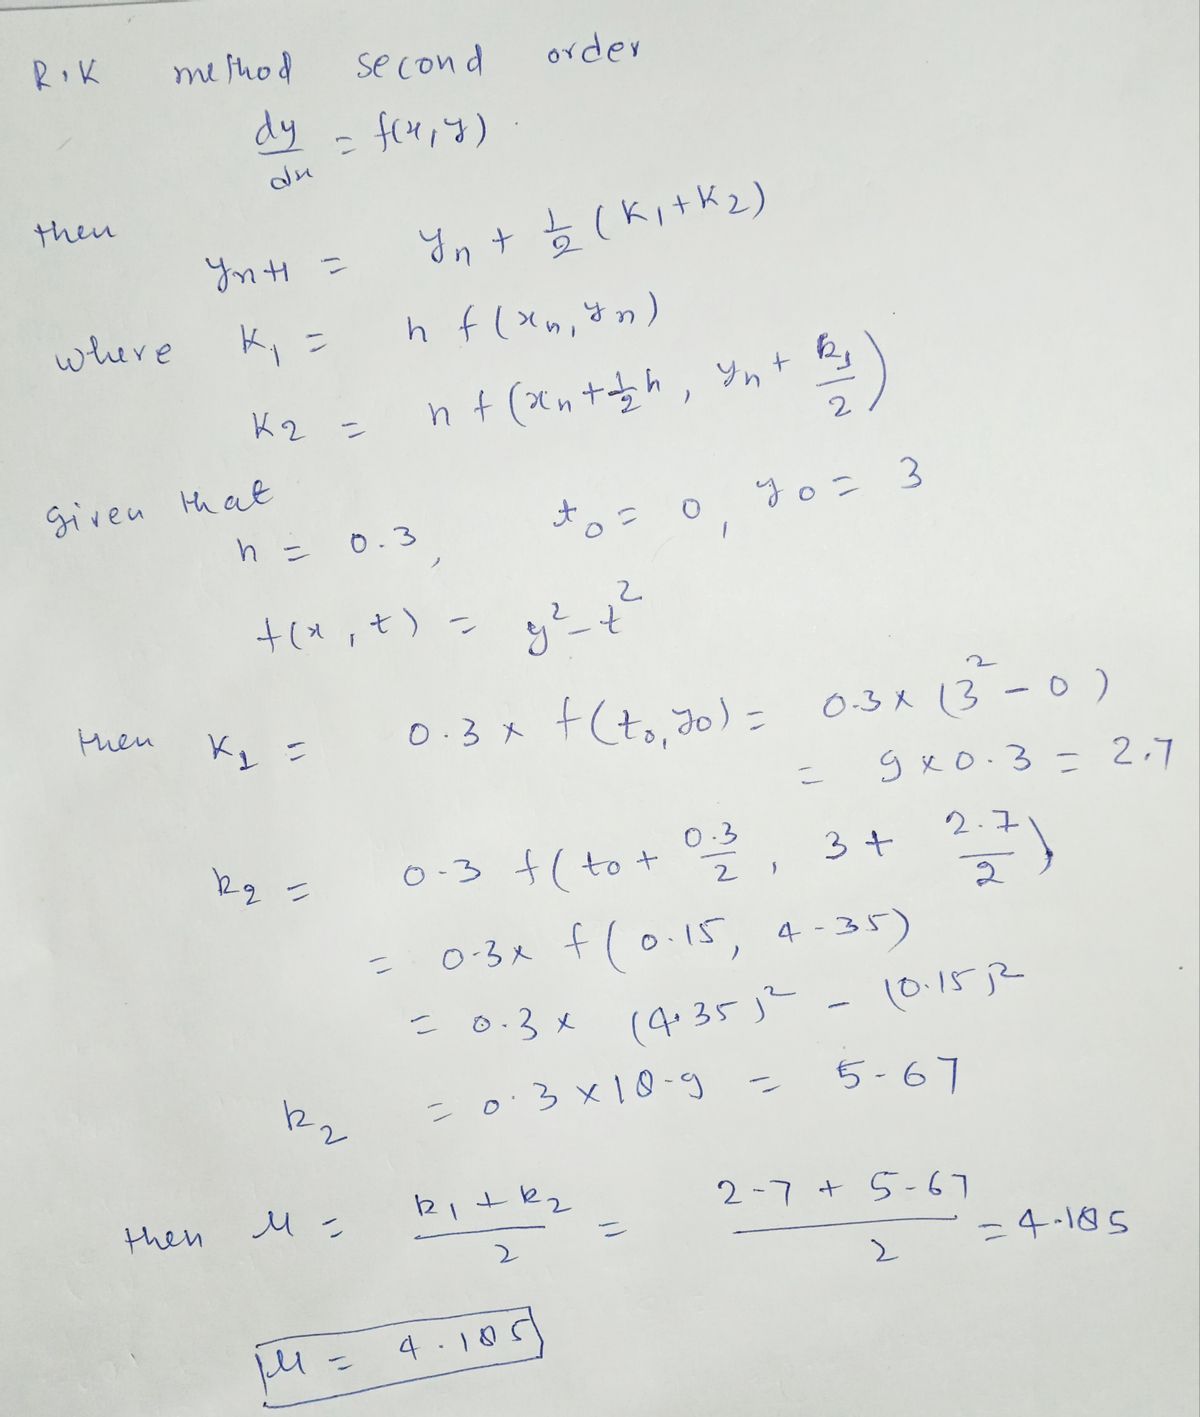 R.K method second order
dy/dx = f(x, y).
then
yn+1 = yn + 1/2 (K1 + K2)
where K1 = h f(xn, yn)
K2 = h f(xn + 1/2 h, yn + k1/2)
given that
h = 0.3, t0 = 0, y0 = 3
f(x, t) = y² - t²
then K1 = 0.3 x f(t0, y0) = 0.3 x (3² - 0)
= 9 x 0.3 = 2.7
k2 = 0.3 f(t0 + 0.3/2, 3 + 2.7/2)
= 0.3 x f(0.15, 4.35)
= 0.3 x (4.35)² - (0.15)²
k2 = 0.3 x 18.9 = 5.67
then M = k1 + k2 / 2 = 2.7 + 5.67 / 2 = 4.185
M = 4.185